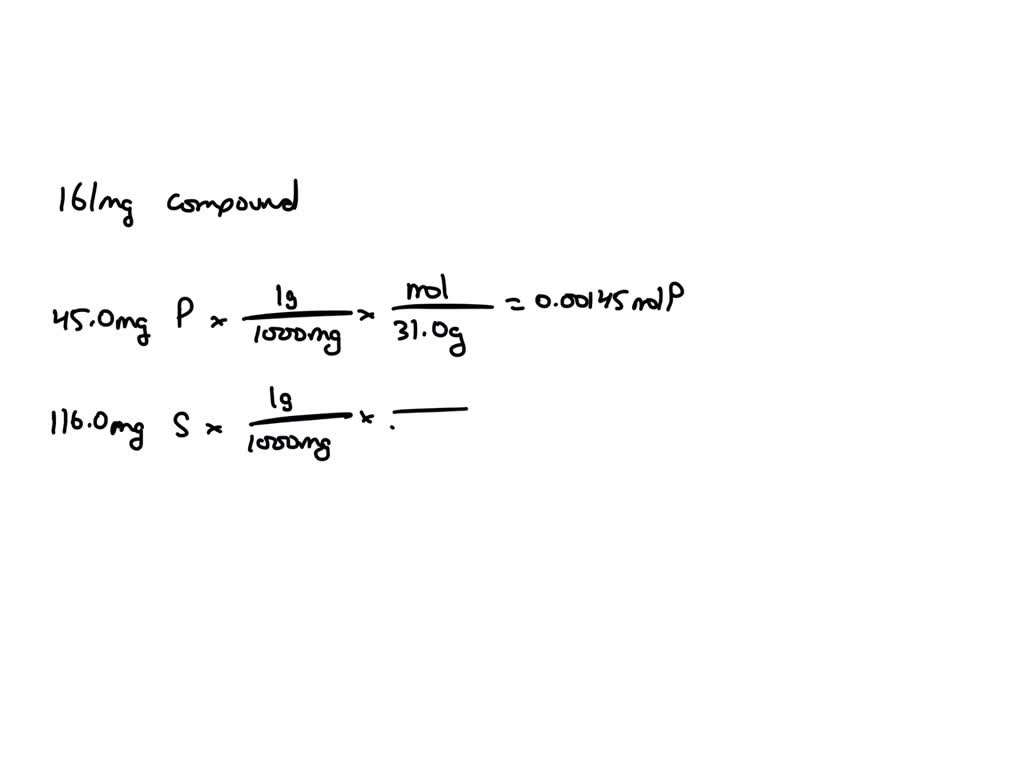 161mg compound
45.0mg P × 1g/1000mg × mol/31.0g = 0.00145 mol P
116.0mg S × 1g/1000mg × .